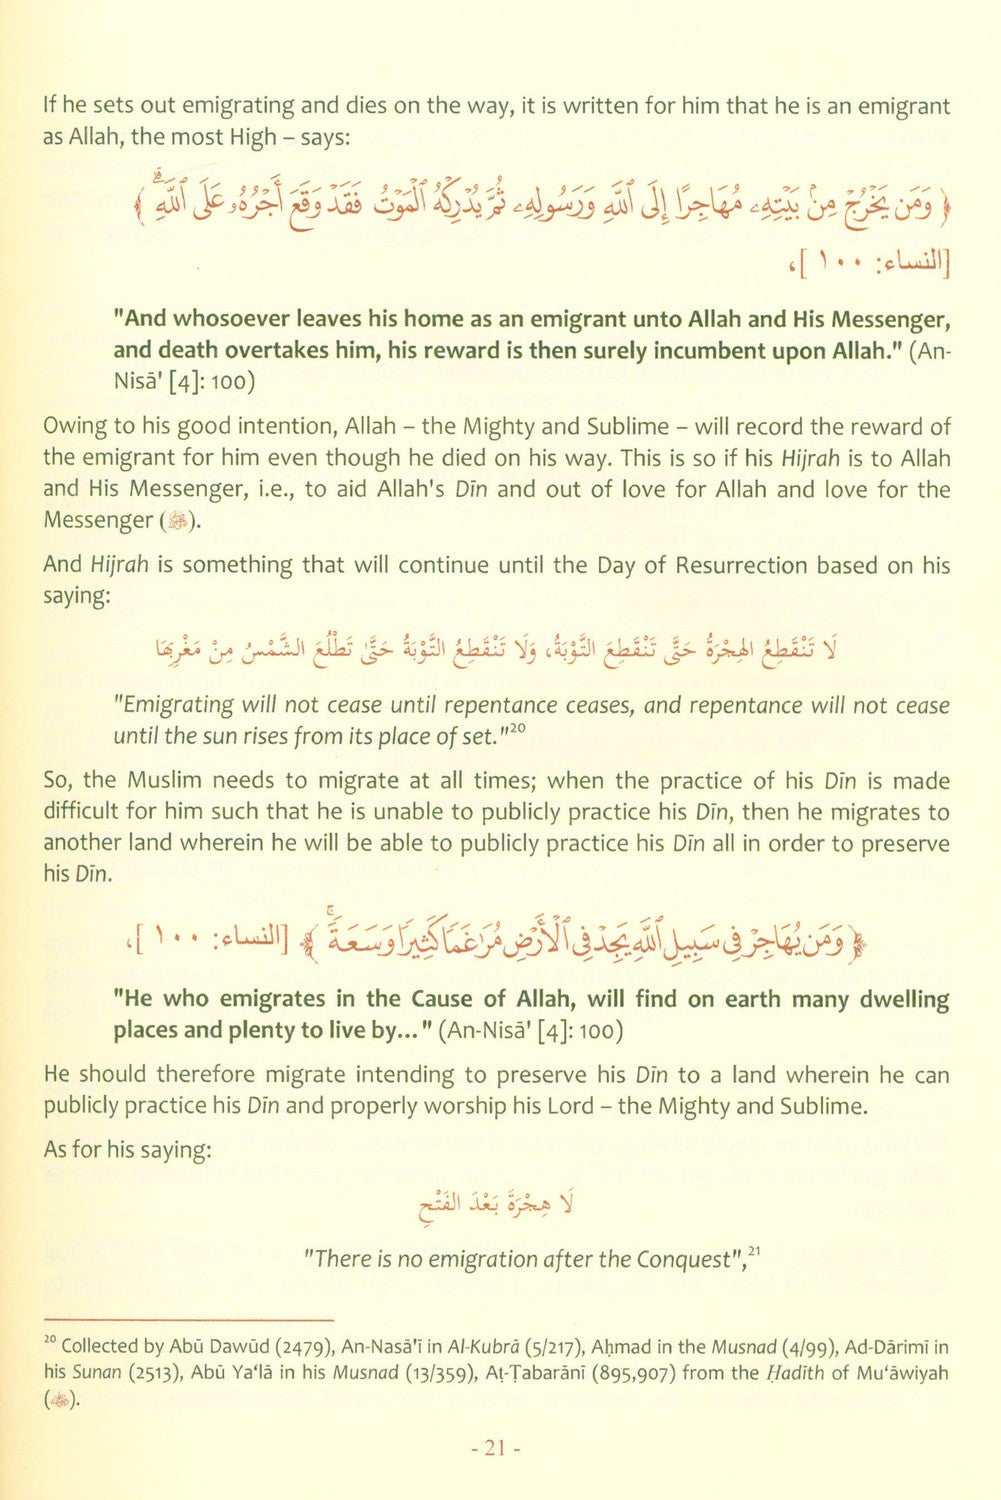 If he sets out emigrating and dies on the way, it is written for him that he is an emigrant
as Allah, the most High – says:
﴿ وَمَن يَخْرُجْ مِنۢ بَيْتِهِۦ مُهَاجِرًا إِلَى ٱللَّهِ وَرَسُولِهِۦ ثُمَّ يُدْرِكْهُ ٱلْمَوْتُ فَقَدْ وَقَعَ أَجْرُهُۥ عَلَى ٱللَّهِ ۗ ﴾
[النساء: ١٠٠]،
"And whosoever leaves his home as an emigrant unto Allah and His Messenger,
and death overtakes him, his reward is then surely incumbent upon Allah." (An-
Nisā' [4]: 100)
Owing to his good intention, Allah – the Mighty and Sublime – will record the reward of
the emigrant for him even though he died on his way. This is so if his Hijrah is to Allah
and His Messenger, i.e., to aid Allah's Dīn and out of love for Allah and love for the
Messenger (ﷺ).
And Hijrah is something that will continue until the Day of Resurrection based on his
saying:
لَا تَنْقَطِعُ الهِجْرَةُ حَتَّى تَنْقَطِعَ التَّوْبَةُ، وَلَا تَنْقَطِعُ التَّوْبَةُ حَتَّى تَطْلُعَ الشَّمْسُ مِنْ مَغْرِبِهَا
"Emigrating will not cease until repentance ceases, and repentance will not cease
until the sun rises from its place of set."20
So, the Muslim needs to migrate at all times; when the practice of his Dīn is made
difficult for him such that he is unable to publicly practice his Dīn, then he migrates to
another land wherein he will be able to publicly practice his Dīn all in order to preserve
his Dīn.
﴿ وَمَن يُهَاجِرْ فِى سَبِيلِ ٱللَّهِ يَجِدْ فِى ٱلْأَرْضِ مُرَٰغَمًا كَثِيرًا وَسَعَةً ۚ ﴾ [النساء: ١٠٠]،
"He who emigrates in the Cause of Allah, will find on earth many dwelling
places and plenty to live by..." (An-Nisā' [4]: 100)
He should therefore migrate intending to preserve his Dīn to a land wherein he can
publicly practice his Dīn and properly worship his Lord – the Mighty and Sublime.
As for his saying:
لَا هِجْرَةَ بَعْدَ الفَتْحِ
"There is no emigration after the Conquest",21
20 Collected by Abū Dawūd (2479), An-Nasā'ī in Al-Kubrā (5/217), Aḥmad in the Musnad (4/99), Ad-Dārimī in
his Sunan (2513), Abū Ya‘lā in his Musnad (13/359), Aṭ-Ṭabarānī (895,907) from the Ḥadīth of Mu‘āwiyah
().
- 21 -